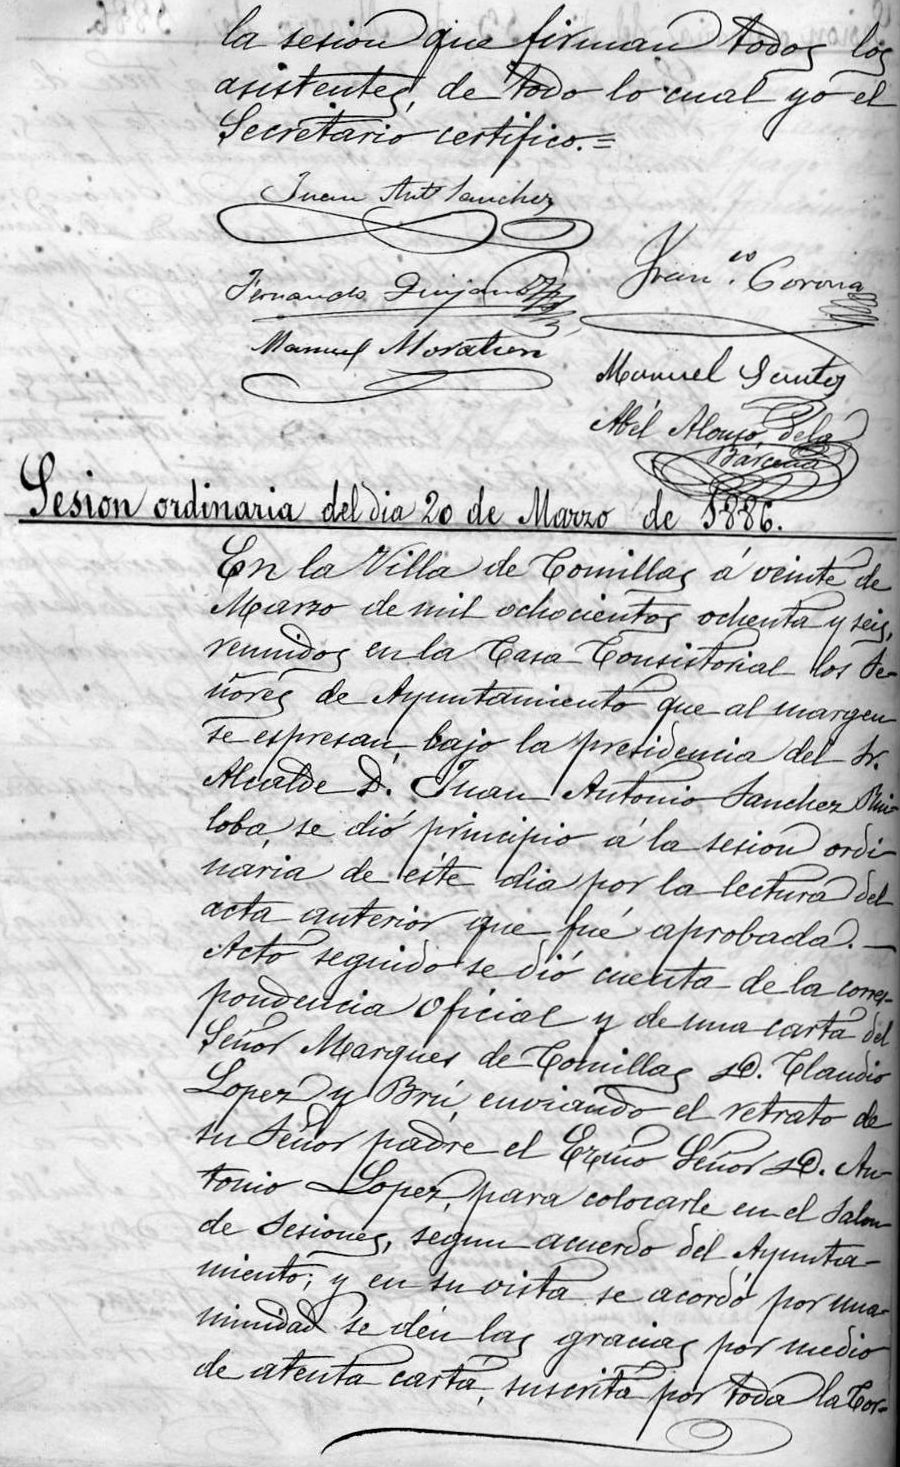 la sesion que firman todos los
asistentes, de todo lo cual yo el
Secretario certifico.=
Juan Ant. Sanchez
Fernando
Fran.co Corona
Manuel Moratien
Manuel Santos
Abél Alonso de la
Bárcena
Sesion ordinaria del dia 20 de Marzo de 1886.
En la Villa de Comillas á veinte de
Marzo de mil ochocientos ochenta y seis,
reunidos en la Casa Consistorial los Se-
ñores de Ayuntamiento que al margen
se espresan, bajo la presidencia del Sr.
Alcalde D. Juan Antonio Sanchez Rui-
loba, se dió principio á la sesion ordi-
nária de éste dia por la lectura del
acta anterior que fué aprobada.—
Acto seguido se dió cuenta de la corres-
pondencia oficial y de una carta del
Señor Marques de Comillas D. Claudio
Lopez y Brú, enviando el retrato de
su Señor padre el Ezmo Señor D. An-
tonio Lopez, para colocarle en el salon
de Sesiones, segun acuerdo del Ayunta-
miento; y en su vista se acordó por una-
nimidad se dén las gracias por medio
de atenta carta, suscrita por toda la Cor-